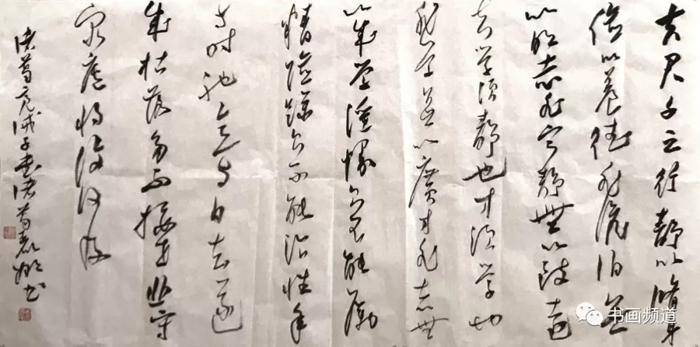 夫君子之行静以修身
俭以养德非澹泊无
以明志非宁静无以致远
夫学须静也才须学也
非学无以广才非志无
以成学淫慢则不能励
精险躁则不能治性年
与时驰意与日去遂
成枯落多不接世悲守
穷庐将复何及
诸葛亮诫子书诸葛
书画频道